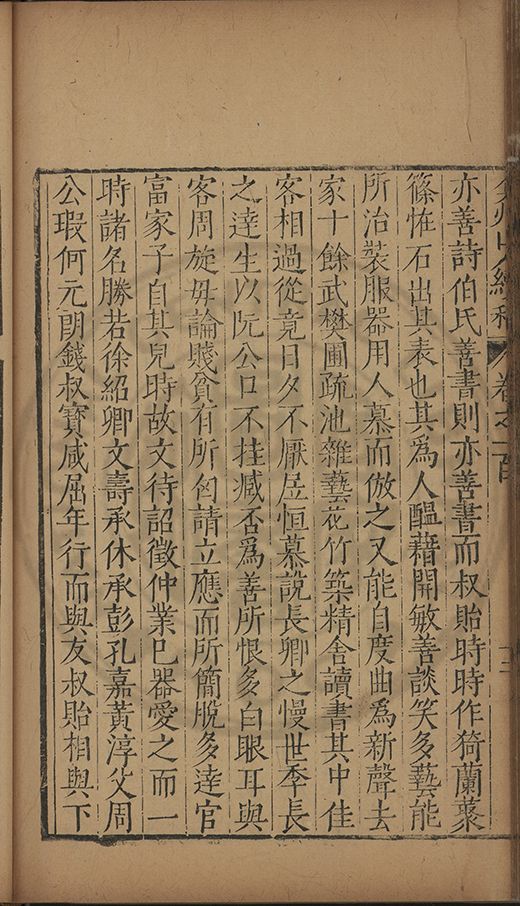 亦善詩伯氏善書則亦善書而叔貽時時作猗蘭藂
篠恠石出其表也其爲人醖藉開敏善談笑多藝能
所治裝服器用人慕而倣之又能自度曲爲新聲去
家十餘武樊圃疏池雜藝花竹築精舍讀書其中佳
客相過從竟日夕不厭居恒慕說長卿之慢世季長
之達生以阮公口不挂臧否爲善所恨多白眼耳與
客周旋毋論賤貧有所匄請立應而所簡脫多達官
富家子自其兒時故文待詔徵仲業巳器愛之而一
時諸名勝若徐紹卿文壽承休承彭孔嘉黃淳父周
公瑕何元朗錢叔寶咸屈年行而與友叔貽相與下